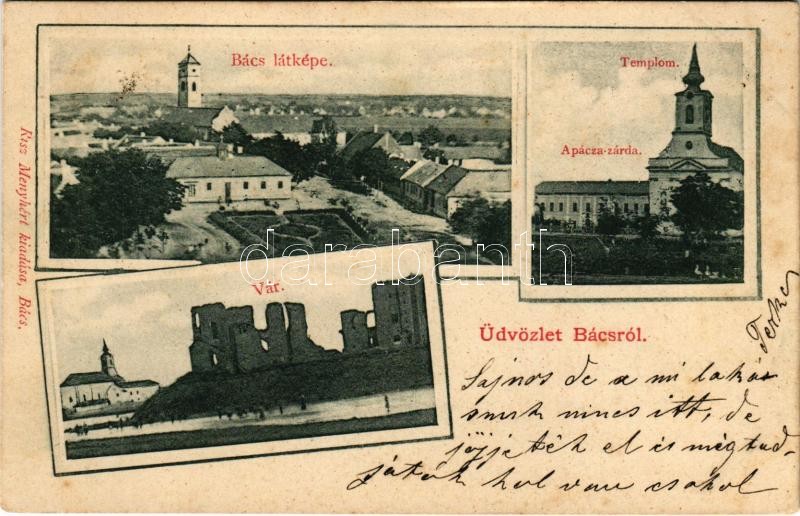 Bács látképe.
Templom.
Apácza-zárda.
Risz Menyhért kiadása, Bács.
darabanth
Vár.
Üdvözlet Bácsról.
Terke
Sajnos de a mi laká-
sunk nincs itt, de
jöjjetek el és megtud-
játok hol van